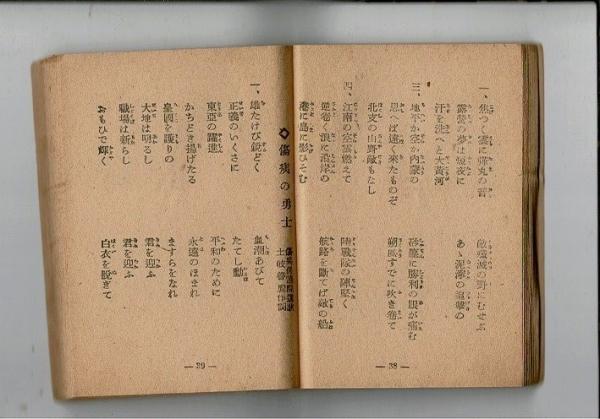 一、焦つく雲に弾丸の音
敵殲滅の野にむせぶ
露營の夢は短夜に
あゝ深夜の追撃の
汗を洗へと大黃河
三、地平か空か內蒙の
砂塵に勝利の眼が痛む
思へば遠く來たものぞ
朔風すでに吹き卷て
北支の山野敵もなし
四、江南の空雲燃えて
陸戰隊の陣堅く
逆卷く浪に沿岸の
航路を斷てば敵の船
港に島に影ひそむ
— 38 —
◇傷殘の勇士
土岐善麿作詞
一、雄たけび銳どく
血潮あびて
正義のいくさに
たてし勳
東亞の躍進
平和のために
かちどき揚げたる
永遠のほまれ
皇國を護りの
ますらをなれ
大地は明るし
君を迎ふ
戰場は新らし
君を迎ふ
おもひで輝く
白衣を脫ぎて
— 39 —